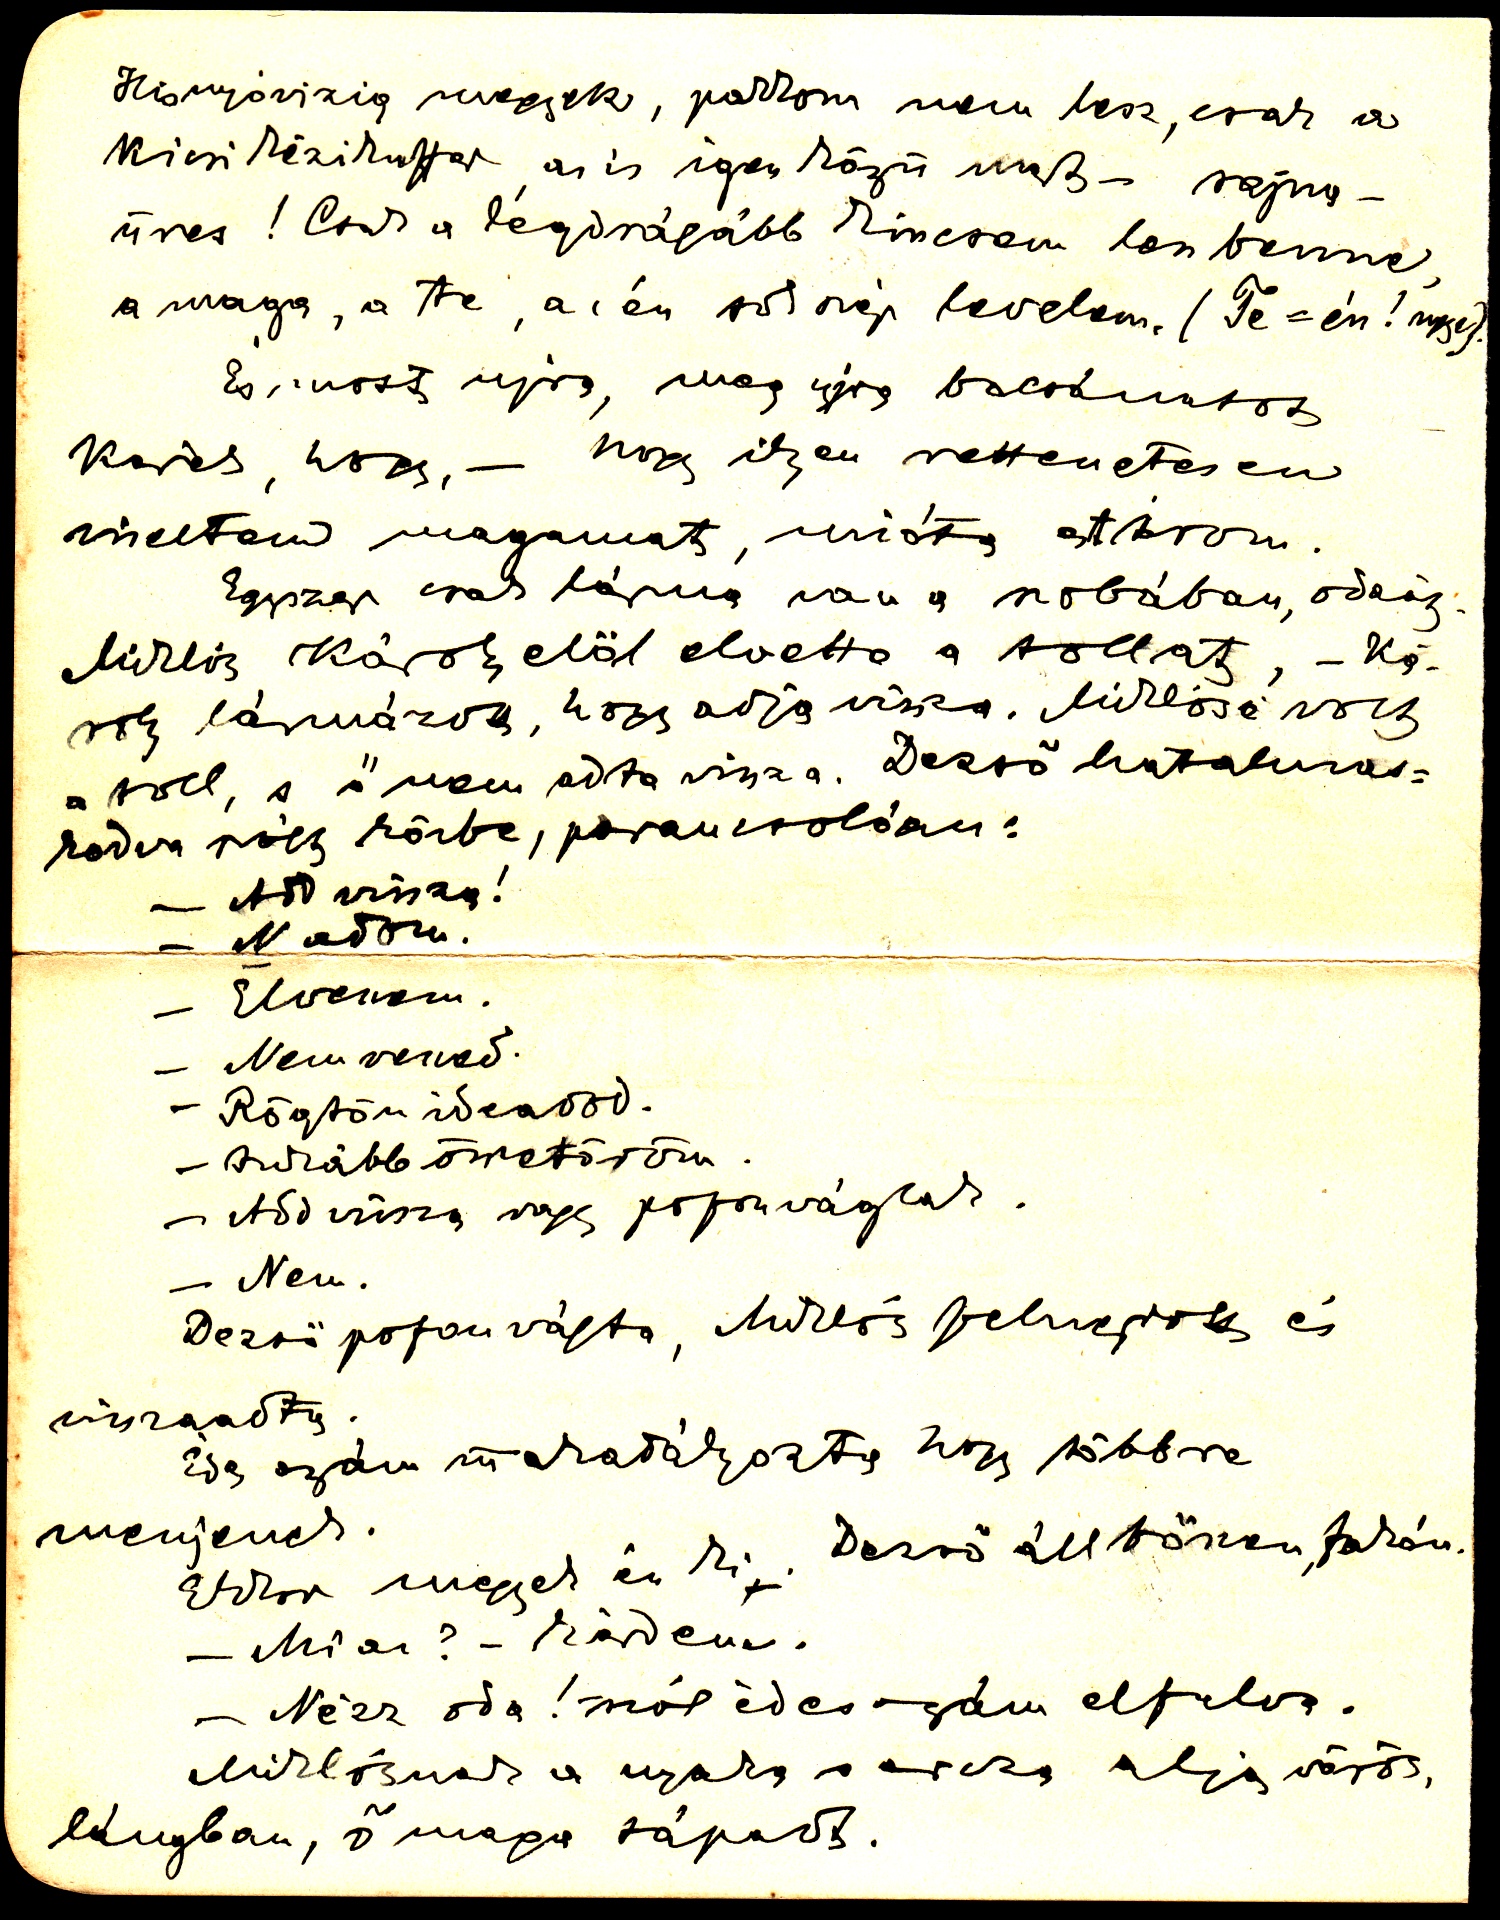 Kisnyóvizig megyek, podrom nem lesz, csak a
kicsi kézikuffer, az is igen közii most – sajna –
üres! Csak a légdrágább kincsem lesz benne,
a maga, a Te, az én sok szép levelem. (Te = én!
És most ujra, meg ujra bocsánatot
kérek, hogy, – hogy ilyen rettenetesen
viseltem magamat, mióta itthron.
Egyszer csak lárma van a szobában, odaát.
Miklós Károly elöl elvette a tollat, – Ká-
roly lármázott, hogy adja vissza. Miklósé volt
a toll, s ö nem adta vissza. Dezsö hatalmas-
kodva szólt közbe, parancsolóan:
– Add vissza!
– N adom.
– Elveszem.
– Nem veszed.
– Rögtön ideadod.
– Inkább összetöröm.
– Add vissza vagy pofonváglak.
– Nem.
Dezsö pofonvágta, Miklós felugrott és
visszaadta.
Édes apám megakadályozta hogy többre
menjenek.
Ekkor megyek én ki. Dezsö áll tökén, fakón.
– Mi az? – kérdem.
– Nézz oda! szól édes apám elfulva.
Miklósnak a nyaka s arcza alja vörös,
lángban, ö maga sápadt.